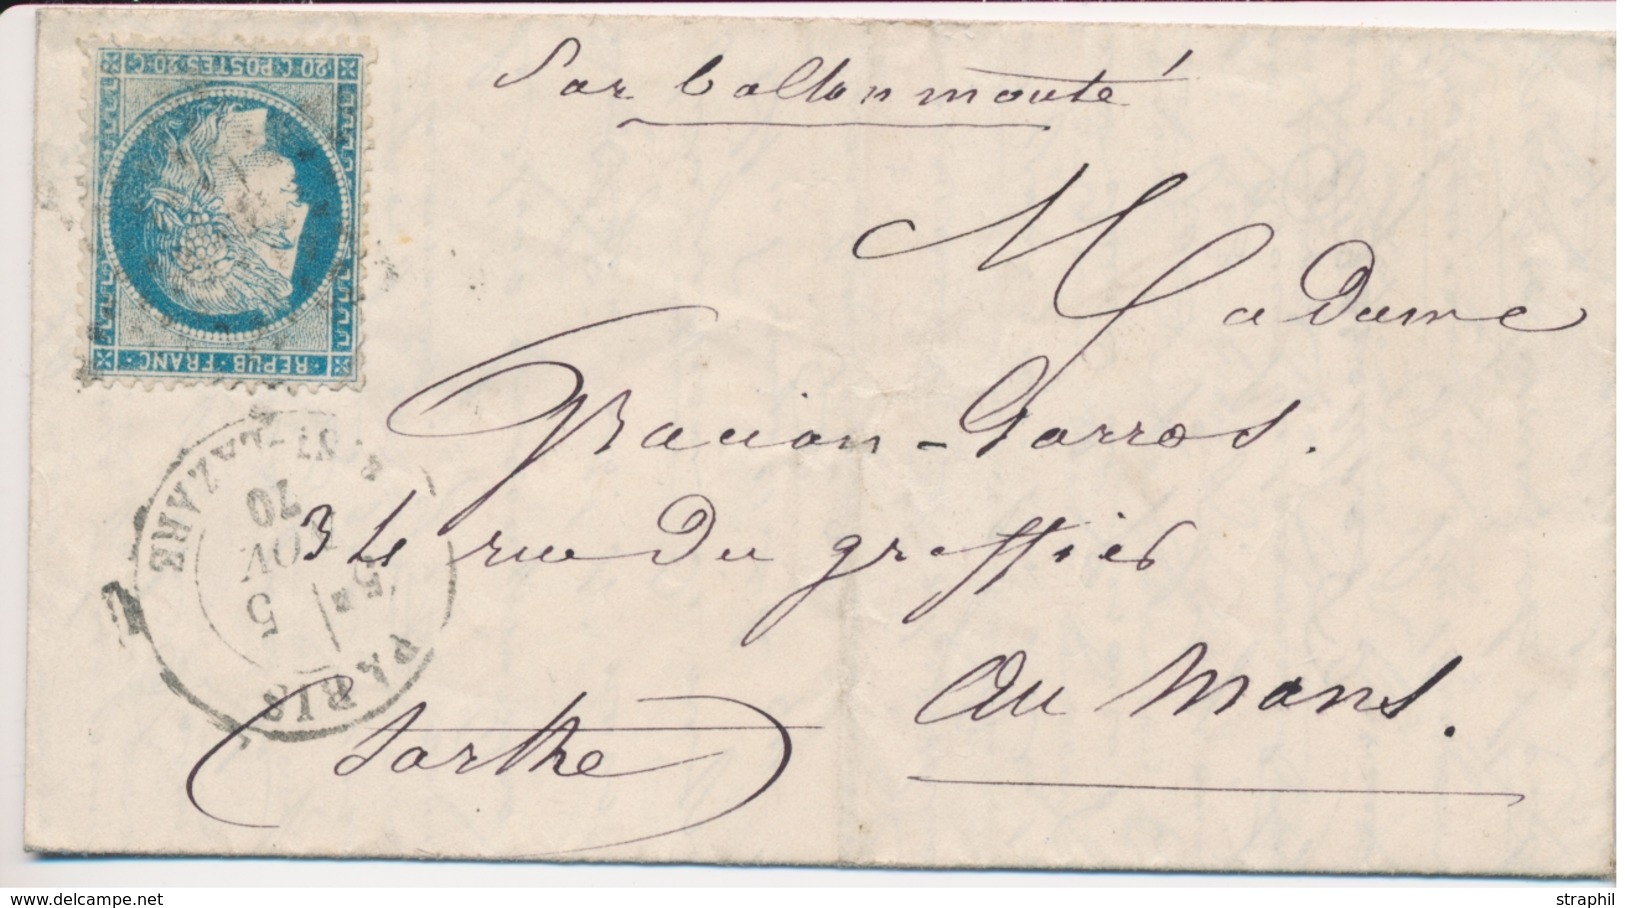 Par ballon monté
Madame
Gracian-Garros.
34 rue du greffier
au Mans.
(Sarthe)
20 C POSTES 20 C
REPUB · FRANC
PARIS
R. ST-LAZARE
5E
5
NOV
70
delcampe.net
straphil